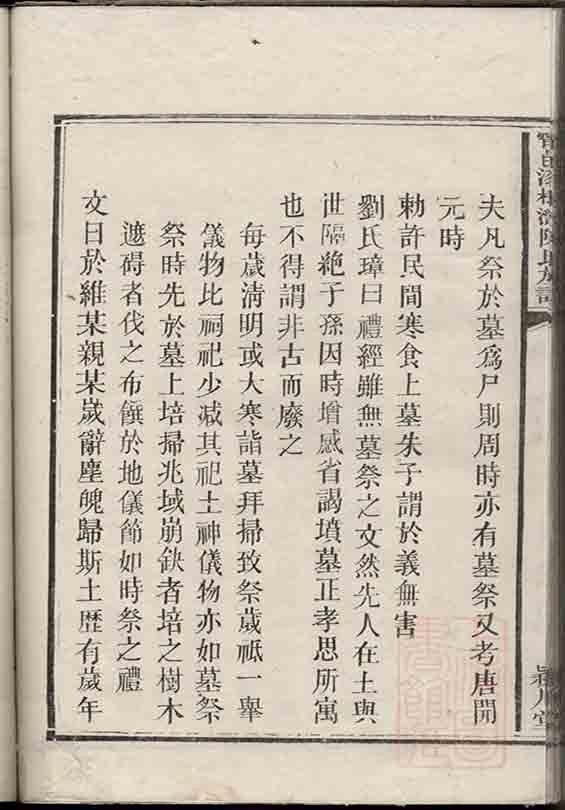 夫凡祭於墓爲尸則周時亦有墓祭又考唐開
元時
勅許民間寒食上墓朱子謂於義無害
劉氏璋曰禮經雖無墓祭之文然先人在土與
世隔絶子孫因時增感省謁墳墓正孝思所寓
也不得謂非古而廢之
每歲清明或大寒詣墓拜掃致祭歲祗一舉
儀物比祠祀少减其祀土神儀物亦如墓祭
祭時先於墓上培掃兆域崩缺者培之樹木
遮碍者伐之布饌於地儀節如時祭之禮
文曰於維某親某歲辭塵魄歸斯土歷有歲年